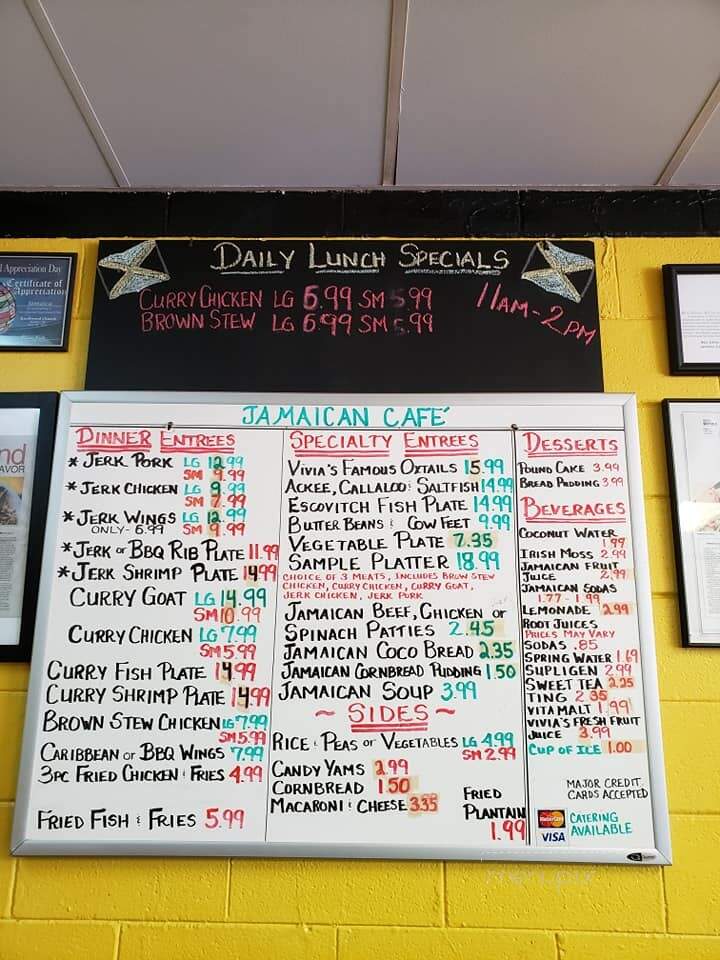 DAILY LUNCH SPECIALS
CURRY CHICKEN LG 6.99 SM 5.99
BROWN STEW LG 6.99 SM 5.99
11AM-2PM
l Appreciation Day
Certificate of
Appreciation
JAMAICAN CAFÉ
DINNER ENTREES
* JERK PORK LG 12.99
SM 9.99
* JERK CHICKEN LG 9.99
SM 7.99
* JERK WINGS LG 12.99
ONLY - 6.99 SM 9.99
* JERK or BBQ RIB PLATE 11.99
* JERK SHRIMP PLATE 14.99
CURRY GOAT LG 14.99
SM 10.99
CURRY CHICKEN LG 7.99
SM 5.99
CURRY FISH PLATE 14.99
CURRY SHRIMP PLATE 14.99
BROWN STEW CHICKEN LG 7.99
SM 5.99
CARIBBEAN or BBQ WINGS 7.99
3PC FRIED CHICKEN & FRIES 4.99
FRIED FISH & FRIES 5.99
SPECIALTY ENTREES
VIVIA'S FAMOUS OXTAILS 15.99
ACKEE, CALLALOO & SALTFISH 14.99
ESCOVITCH FISH PLATE 14.99
BUTTER BEANS & COW FEET 9.99
VEGETABLE PLATE 7.35
SAMPLE PLATTER 18.99
CHOICE OF 3 MEATS, INCLUDES BROW STEW
CHICKEN, CURRY CHICKEN, CURRY GOAT,
JERK CHICKEN, JERK PORK
JAMAICAN BEEF, CHICKEN or
SPINACH PATTIES 2.45
JAMAICAN COCO BREAD 2.35
JAMAICAN CORNBREAD PUDDING 1.50
JAMAICAN SOUP 3.99
~ SIDES ~
RICE & PEAS or VEGETABLES LG 4.99
SM 2.99
CANDY YAMS 2.99
CORNBREAD 1.50
MACARONI & CHEESE 3.35
FRIED
PLANTAIN
1.99
DESSERTS
POUND CAKE 3.99
BREAD PUDDING 3.99
BEVERAGES
COCONUT WATER
1.99
IRISH MOSS 2.99
JAMAICAN FRUIT
JUICE 2.99
JAMAICAN SODAS
1.77 - 1.99
LEMONADE 2.99
ROOT JUICES
PRICES MAY VARY
SODAS .85
SPRING WATER 1.69
SUPLIGEN 2.99
SWEET TEA 2.25
TING 2.35
VITA MALT 1.99
VIVIA'S FRESH FRUIT
JUICE 3.99
CUP OF ICE 1.00
MAJOR CREDIT
CARDS ACCEPTED
MasterCard
VISA
CATERING
AVAILABLE